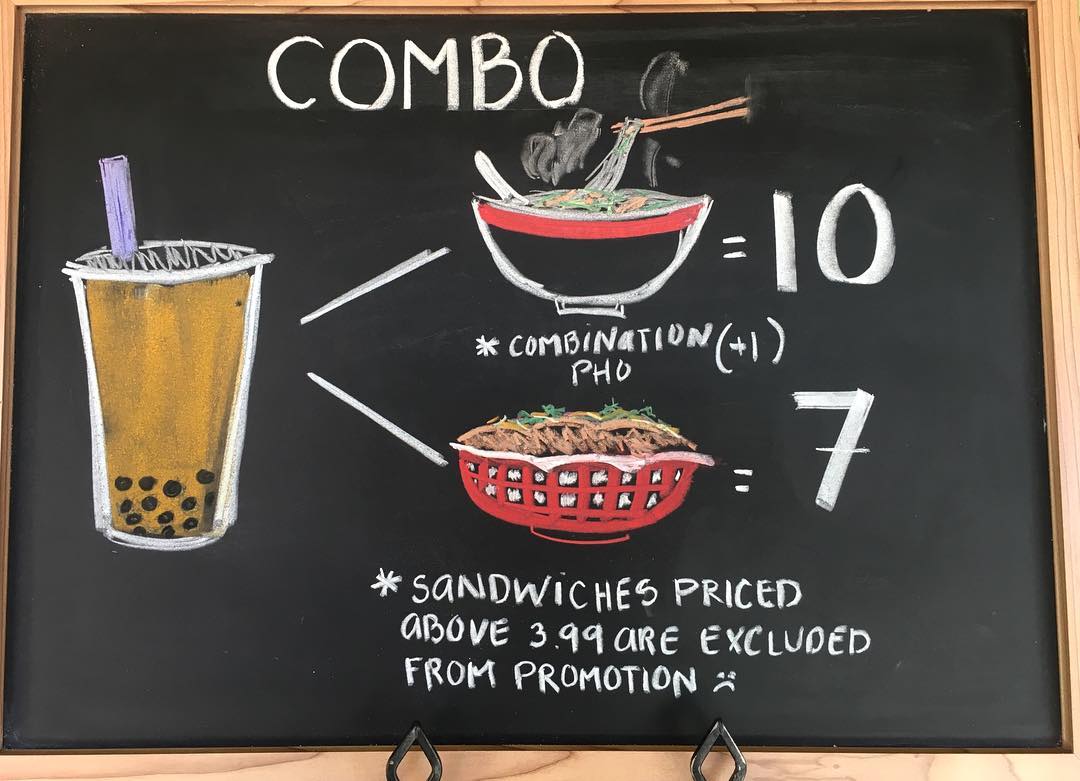 COMBO
= 10
* COMBINATION (+1)
PHO
= 7
* SANDWICHES PRICED
ABOVE 3.99 ARE EXCLUDED
FROM PROMOTION :(